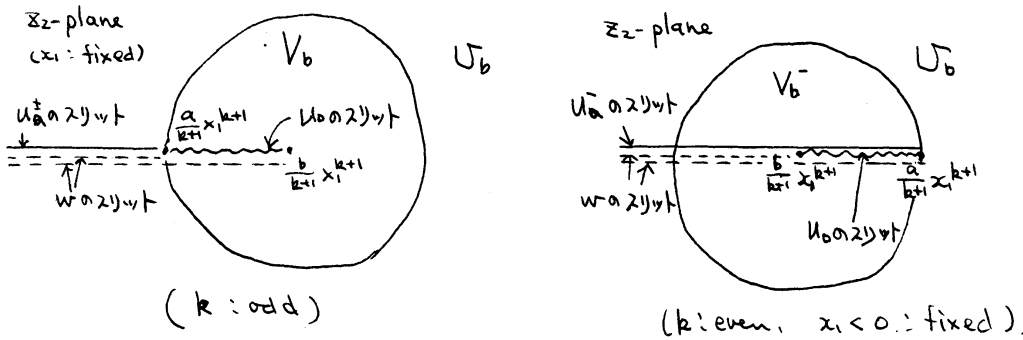 z₂-plane
(x₁ : fixed)
V_b
U_b
u_a^± のスリット
a/(k+1) x₁^{k+1}
u_0 のスリット
b/(k+1) x₁^{k+1}
w のスリット
(k : odd)
z₂-plane
V_b^-
U_b
u_a^- のスリット
b/(k+1) x₁^{k+1}
a/(k+1) x₁^{k+1}
w のスリット
u_0 のスリット
(k : even, x₁ < 0 : fixed).